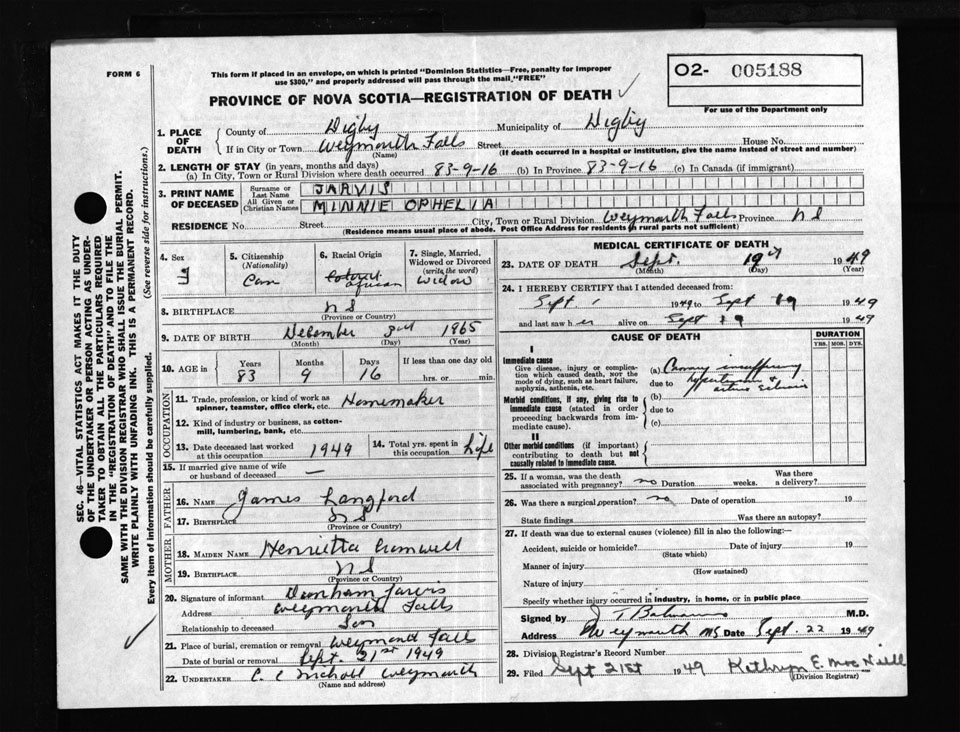 FORM 6
This form if placed in an envelope, on which is printed "Dominion Statistics—Free, penalty for improper
use $300," and properly addressed will pass through the mail, "FREE"
O2- 005188
For use of the Department only
PROVINCE OF NOVA SCOTIA—REGISTRATION OF DEATH
SEC. 46—VITAL STATISTICS ACT MAKES IT THE DUTY
OF THE UNDERTAKER OR PERSON ACTING AS UNDER-
TAKER TO OBTAIN ALL THE PARTICULARS REQUIRED
IN THE "REGISTRATION OF DEATH" AND TO FILE THE
SAME WITH THE DIVISION REGISTRAR WHO SHALL ISSUE THE BURIAL PERMIT.
WRITE PLAINLY WITH UNFADING INK. THIS IS A PERMANENT RECORD.
Every item of information should be carefully supplied. (See reverse side for instructions.)
1. PLACE OF DEATH
County of Digby Municipality of Digby
If in City or Town Weymouth Falls Street House No.
(Name) (If death occurred in a hospital or institution, give the name instead of street and number)
2. LENGTH OF STAY (in years, months and days)
(a) In City, Town or Rural Division where death occurred 83-9-16 (b) In Province 83-9-16 (c) In Canada (if immigrant)
3. PRINT NAME OF DECEASED
Surname or Last Name JARVIS
All Given or Christian Names MINNIE OPHELIA
RESIDENCE No. Street City, Town or Rural Division Weymouth Falls Province N S
(Residence means usual place of abode. Post Office Address for residents in rural parts not sufficient)
4. Sex F
5. Citizenship (Nationality) Can
6. Racial Origin Colored African
7. Single, Married, Widowed or Divorced (write the word) Widow
8. BIRTHPLACE N S
(Province or Country)
9. DATE OF BIRTH December 3rd 1865
(Month) (Day) (Year)
10. AGE in Years Months Days If less than one day old
83 9 16 hrs. or min.
OCCUPATION
11. Trade, profession, or kind of work as
spinner, teamster, office clerk, etc. Homemaker
12. Kind of industry or business, as cotton-
mill, lumbering, bank, etc.
13. Date deceased last worked at this occupation 1949
14. Total yrs. spent in this occupation Life
15. If married give name of wife
or husband of deceased —
FATHER
16. NAME James Langford
17. BIRTHPLACE N S
(Province or Country)
MOTHER
18. MAIDEN NAME Henrietta Cromwell
19. BIRTHPLACE N S
(Province or Country)
20. Signature of informant Jarvis
Address Weymouth Falls
Relationship to deceased Son
21. Place of burial, cremation or removal Weymouth Falls
Date of burial or removal Sept. 21st 1949
22. UNDERTAKER C. C Nichols Weymouth
(Name and address)
MEDICAL CERTIFICATE OF DEATH
23. DATE OF DEATH Sept. 19th 1949
(Month) (Day) (Year)
24. I HEREBY CERTIFY that I attended deceased from:
Sept. 1 1949 to Sept 19 1949
and last saw her alive on Sept 19 1949
CAUSE OF DEATH DURATION
YRS. MOS. DYS.
I
Immediate cause
Give disease, injury or complica-
tion which caused death, NOT the
mode of dying, such as heart failure,
asphyxia, asthenia, etc.
(a) insufficiency
due to
Morbid conditions, if any, giving rise to
immediate cause (stated in order
proceeding backwards from im-
mediate cause).
(b)
due to
(c)
II
Other morbid conditions (if important)
contributing to death but not
causally related to immediate cause.
25. If a woman, was the death
associated with pregnancy? no Duration weeks. Was there a delivery?
26. Was there a surgical operation? no Date of operation 19
State findings Was there an autopsy?
27. If death was due to external causes (violence) fill in also the following:—
Accident, suicide or homicide? Date of injury 19
(State which)
Manner of injury
(How sustained)
Nature of injury
Specify whether injury occurred in industry, in home, or in public place
Signed by M.D.
Address Weymouth N.S. Date Sept. 22 1949
28. Division Registrar's Record Number
29. Filed Sept 21st 1949 Kathryn E. MacNeill
(Division Registrar)